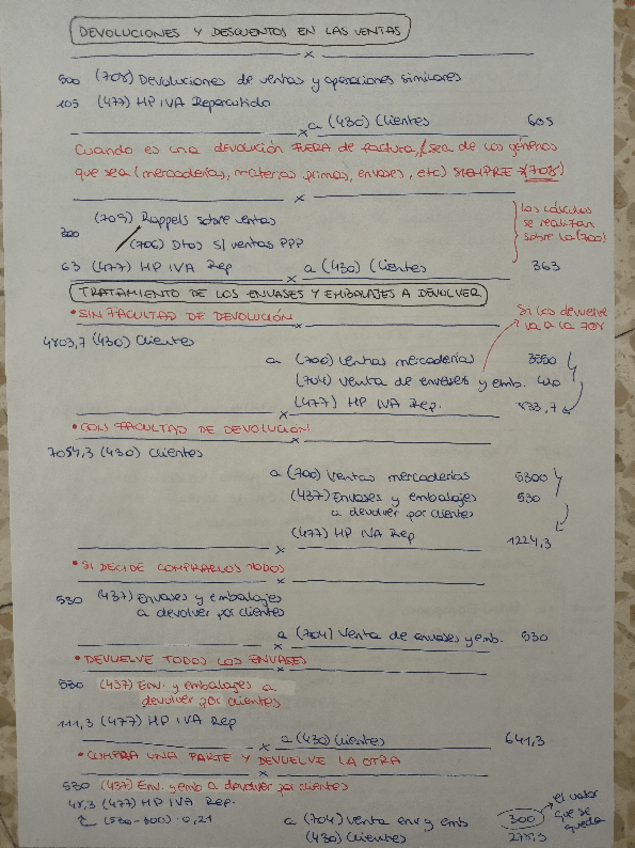 DEVOLUCIONES Y DESCUENTOS EN LAS VENTAS
x
500 (708) Devoluciones de ventas y operaciones similares
105 (477) HP IVA Repercutido
x a (430) Clientes 605
Cuando es una devolución FUERA de factura, sea de los géneros
que sea (mercaderías, materias primas, envases, etc) SIEMPRE (708)
x
(709) Rappels sobre ventas
300
/ (706) Dtos s/ ventas PPP
los cálculos
se realizan
sobre la (700)
63 (477) HP IVA Rep a (430) Clientes 363
x
TRATAMIENTO DE LOS ENVASES Y EMBALAJES A DEVOLVER
• SIN FACULTAD DE DEVOLUCIÓN
Si los devuelve
va a la 708
x
4803,7 (430) Clientes
a (700) Ventas mercaderías
(704) Venta de envases y emb.
(477) HP IVA Rep. 833,7
x
• CON FACULTAD DE DEVOLUCIÓN
x
7054,3 (430) Clientes
a (700) Ventas mercaderías 5300
(437) Envases y embalajes 530
a devolver por clientes
(477) HP IVA Rep 1224,3
x
• SI DECIDE COMPRARLOS TODOS
x
530 (437) Envases y embalajes
a devolver por clientes
a (704) Venta de envases y emb. 530
x
• DEVUELVE TODOS LOS ENVASES
x
530 (437) Env. y embalajes a
devolver por clientes
111,3 (477) HP IVA Rep
a (430) Clientes 641,3
x
• COMPRA UNA PARTE Y DEVUELVE LA OTRA
x
530 (437) Env. y emb a devolver por clientes
48,3 (477) HP IVA Rep.
(530-300) · 0,21
a (704) Venta env y emb 300
el valor
que se
queda
(430) Clientes 278,3